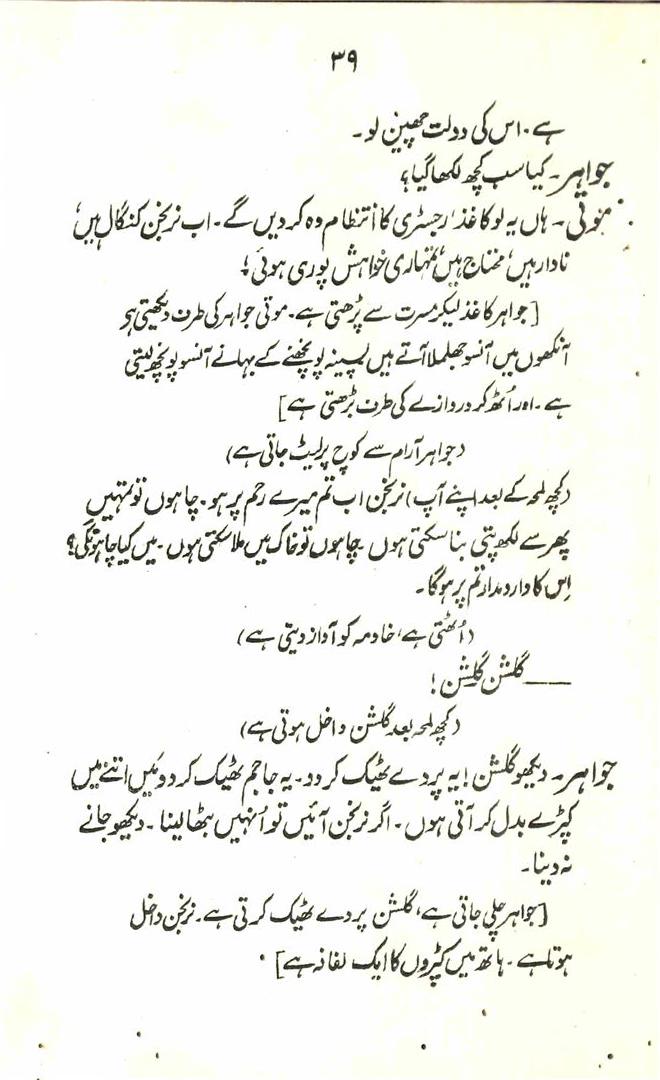 ۳۹
ہے۔ اس کی دولت چھین لو۔
جواہر۔ کیا سب کچھ لکھا گیا؟
موتی۔ ہاں یہ لو کاغذ، رجسٹری کا انتظام وہ کر دیں گے۔ اب نرنجن کنگال ہیں،
نادار ہیں، محتاج ہیں، تمہاری خواہش پوری ہوئی؛
[جواہر کاغذ لیکر مسرت سے پڑھتی ہے۔ موتی جواہر کی طرف دیکھتی ہو
آنکھوں میں آنسو جھلملا آتے ہیں پسینہ پونچھنے کے بہانے آنسو پونچھ لیتی
ہے۔ اور اُٹھ کر دروازے کی طرف بڑھتی ہے]
(جواہر آرام سے کوچ پر لیٹ جاتی ہے)
(کچھ لمحہ کے بعد اپنے آپ) نرنجن اب تم میرے رحم پر ہو۔ چاہوں تو تمہیں
پھر سے لکھ پتی بنا سکتی ہوں چاہوں تو خاک میں ملا سکتی ہوں۔ میں کیا چاہونگی؟
اِس کا دارومدار تم پر ہوگا۔
(اُٹھتی ہے، خادمہ کو آواز دیتی ہے)
——گلشن گلشن!
(کچھ لمحہ بعد گلشن داخل ہوتی ہے)
جواہر۔ دیکھو گلشن! یہ پردے ٹھیک کر دو۔ یہ جاجم ٹھیک کر دو میں اتنے میں
کپڑے بدل کر آتی ہوں۔ اگر نرنجن آئیں تو اُنہیں بٹھا لینا۔ دیکھو جانے
نہ دینا۔
[جواہر چلی جاتی ہے، گلشن پردے ٹھیک کرتی ہے۔ نرنجن داخل
ہوتا ہے۔ ہاتھ میں کپڑوں کا ایک لفافہ ہے]